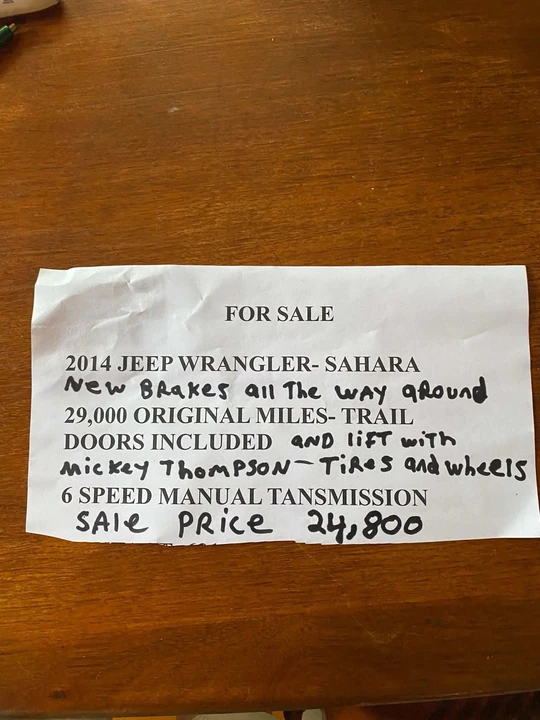 FOR SALE
2014 JEEP WRANGLER- SAHARA
New BRakes all The WAY aRound
29,000 ORIGINAL MILES- TRAIL
DOORS INCLUDED AND lIFT with
Mickey THomPSON- TiRes and wheels
6 SPEED MANUAL TANSMISSION
SAle PRice 24,800